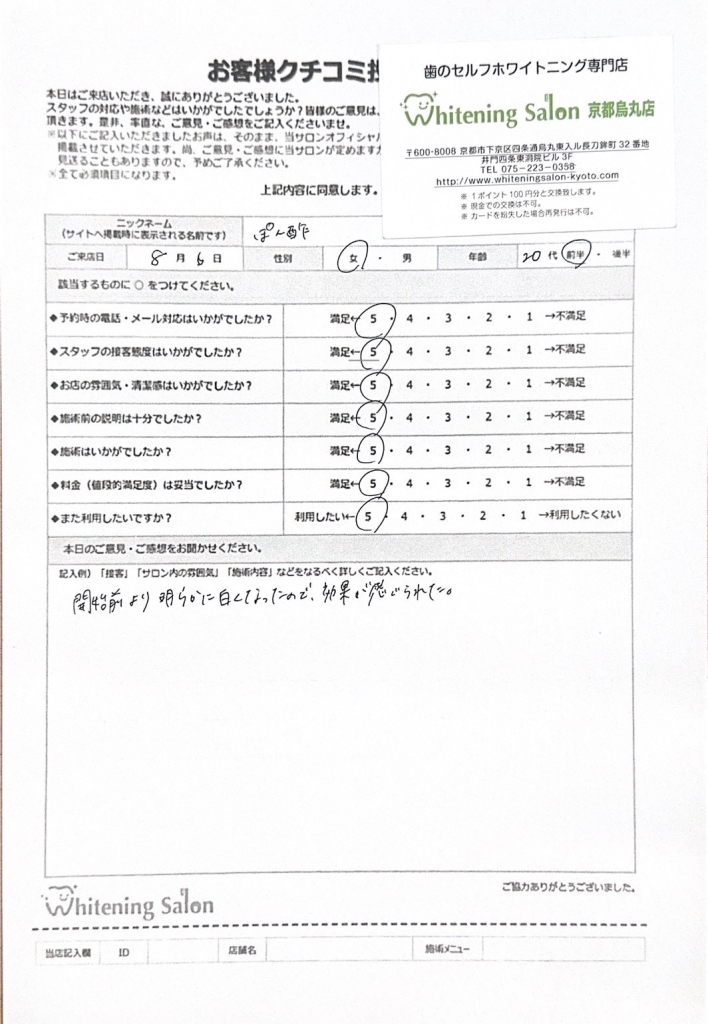 お客様クチコミ
本日はご来店いただき、誠にありがとうございました。
スタッフの対応や施術などはいかがでしたでしょうか?皆様のご意見は、
頂きます。是非、率直な、ご意見・ご感想をご記入くださいませ。
※以下にご記入いただきましたお声は、そのまま、当サロンオフィシャル
掲載させていただきます。尚、ご意見・ご感想に当サロンが定めます
見送ることもありますので、予めご了承ください。
※全て必須項目になります。
上記内容に同意します。
歯のセルフホワイトニング専門店
Whitening Salon 京都烏丸店
〒600-8008 京都市下京区四条通烏丸東入ル長刀鉾町 32 番地
井門四条東洞院ビル 3F
TEL 075-223-0358
http://www.whiteningsalon-kyoto.com
※ 1ポイント100円分と交換致します。
※ 現金での交換は不可。
※ カードを紛失した場合再発行は不可。
ニックネーム
(サイトへ掲載時に表示される名前です) ぽん酢
ご来店日 8 月 6 日 性別 女 ・ 男 年齢 20 代 前半 ・ 後半
該当するものに ○ をつけてください。
◆予約時の電話・メール対応はいかがでしたか? 満足← 5 ・ 4 ・ 3 ・ 2 ・ 1 →不満足
◆スタッフの接客態度はいかがでしたか? 満足← 5 ・ 4 ・ 3 ・ 2 ・ 1 →不満足
◆お店の雰囲気・清潔感はいかがでしたか? 満足← 5 ・ 4 ・ 3 ・ 2 ・ 1 →不満足
◆施術前の説明は十分でしたか? 満足← 5 ・ 4 ・ 3 ・ 2 ・ 1 →不満足
◆施術はいかがでしたか? 満足← 5 ・ 4 ・ 3 ・ 2 ・ 1 →不満足
◆料金(値段的満足度)は妥当でしたか? 満足← 5 ・ 4 ・ 3 ・ 2 ・ 1 →不満足
◆また利用したいですか? 利用したい← 5 ・ 4 ・ 3 ・ 2 ・ 1 →利用したくない
本日のご意見・ご感想をお聞かせください。
記入例)「接客」「サロン内の雰囲気」「施術内容」などをなるべく詳しくご記入ください。
開始前より明らかに白くなったので、効果が感じられた。
ご協力ありがとうございました。
Whitening Salon
当店記入欄 ID 店舗名 施術メニュー